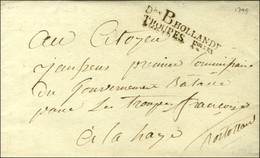 1799
Don B HOLLANDE
TROUPES
Au Citoyen
premier Commissaire
du Gouvernement Batave
pour les Troupes françoises
à la haye